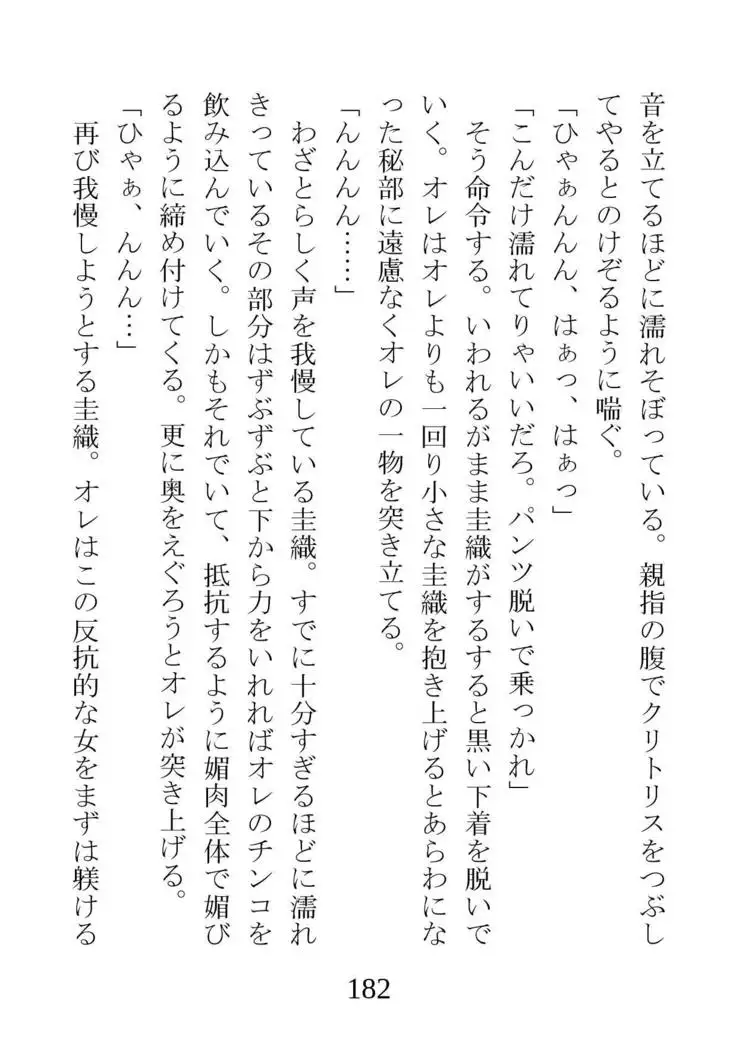 音を立てるほどに濡れそぼっている。親指の腹でクリトリスをつぶし
てやるとのけぞるように喘ぐ。
「ひゃぁんんん、はぁっ、はぁっ」
「こんだけ濡れてりゃいいだろ。パンツ脱いで乗っかれ」
そう命令する。いわれるがまま圭織がするすると黒い下着を脱いで
いく。オレはオレよりも一回り小さな圭織を抱き上げるとあらわにな
った秘部に遠慮なくオレの一物を突き立てる。
「んんんん……」
わざとらしく声を我慢している圭織。すでに十分すぎるほどに濡れ
きっているその部分はずぶずぶと下から力をいれればオレのチンコを
飲み込んでいく。しかもそれでいて、抵抗するように媚肉全体で媚び
るように締め付けてくる。更に奥をえぐろうとオレが突き上げる。
「ひゃぁ、んんん…」
再び我慢しようとする圭織。オレはこの反抗的な女をまずは躾ける
182